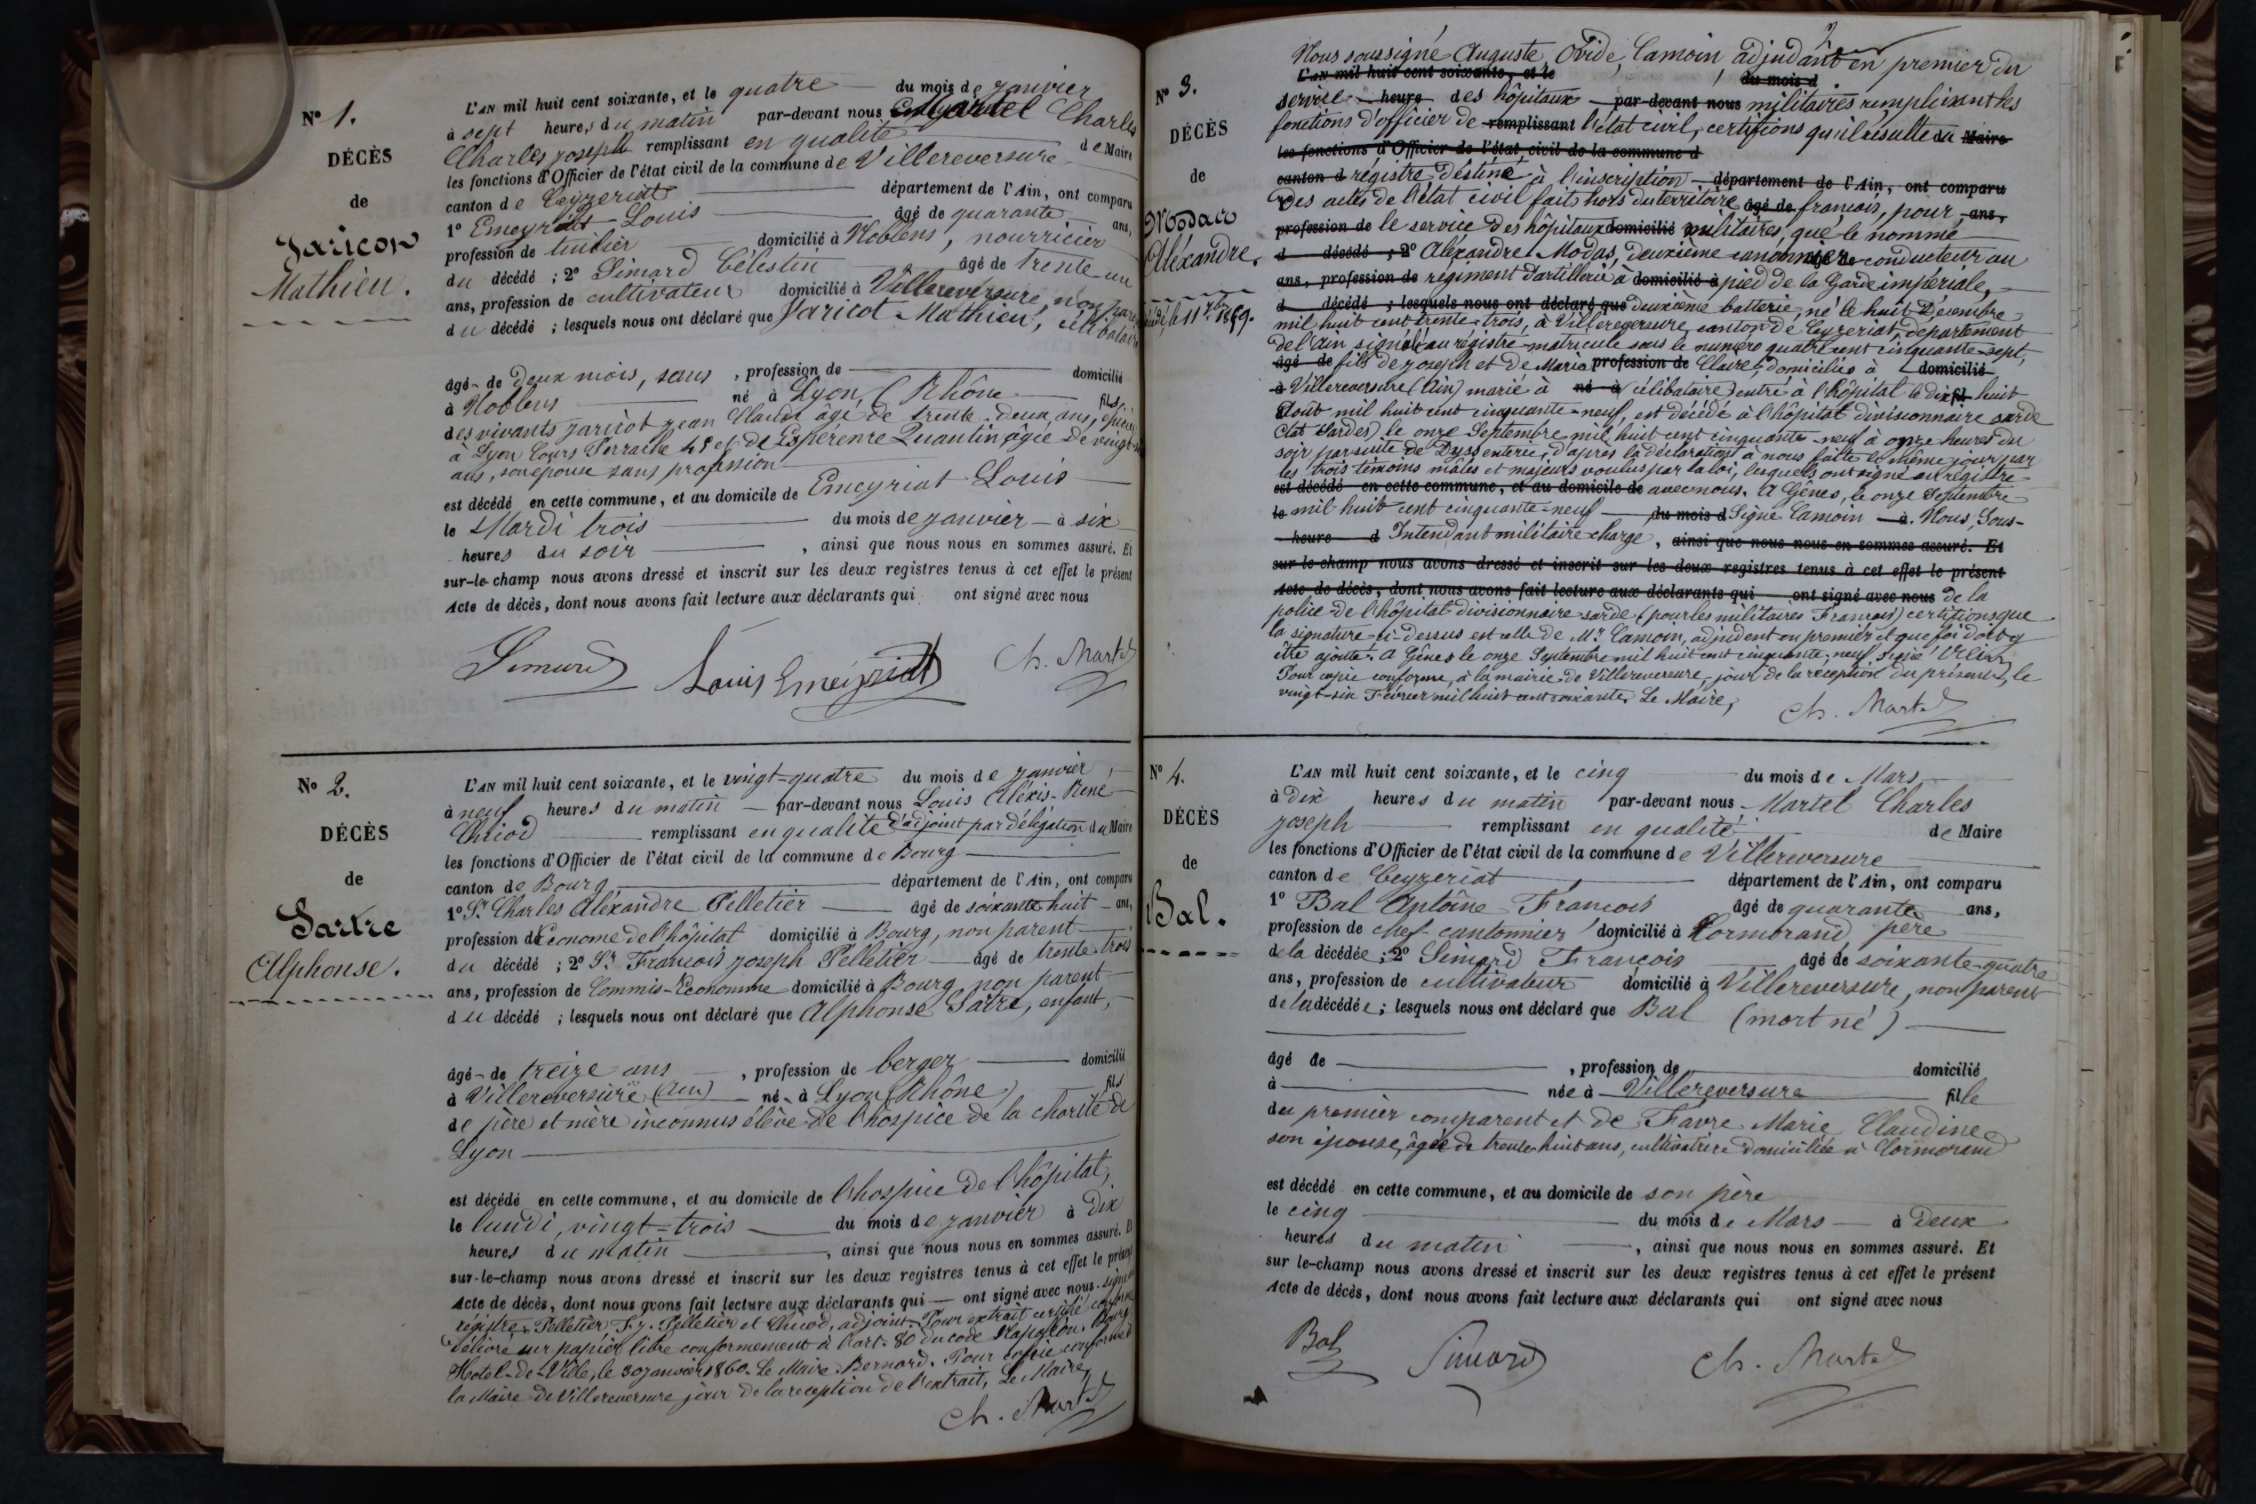 N° 1.
DÉCÈS
de
Jaricot
Mathieu.
L'AN mil huit cent soixante, et le quatre du mois de janvier
à sept heures du matin par-devant nous Martel Charles
Charles joseph remplissant en qualité de Maire
les fonctions d'Officier de l'état civil de la commune de Villereversure
canton de Ceyzeriat département de l'Ain, ont comparu
1° Emeyriat Louis âgé de quarante ans,
profession de tuilier domicilié à Noblens, nourricier
du décédé ; 2° Simard Célestin âgé de trente un
ans, profession de cultivateur domicilié à Villereversure, non parent
du décédé ; lesquels nous ont déclaré que Jaricot Mathieu, célibataire
âgé de deux mois, sans , profession de domicilié
à Noblens né à Lyon, (Rhône fils
des vivants jaricot jean Claude âgé de trente-deux ans, épicier
à Lyon Cours Perrache 45 et de Espérence Quantin âgée de vingt
ans, son épouse sans profession
est décédé en cette commune, et au domicile de Emeyriat Louis
le Mardi trois du mois de janvier à six
heures du soir , ainsi que nous nous en sommes assuré. Et
sur-le-champ nous avons dressé et inscrit sur les deux registres tenus à cet effet le présent
Acte de décès, dont nous avons fait lecture aux déclarants qui ont signé avec nous
Simard Louis Emeyriat Ch. Martel
N° 2.
DÉCÈS
de
Sartre
Alphonse.
L'AN mil huit cent soixante, et le vingt-quatre du mois de janvier,
à neuf heures du matin par-devant nous Louis Aléxis-René
Chicod remplissant en qualité d'adjoint par délégation du Maire
les fonctions d'Officier de l'état civil de la commune de Bourg
canton de Bourg département de l'Ain, ont comparu
1° Sr Charles Aléxandre Pelletier âgé de soixante huit ans,
profession d'Econome de l'hôpital domicilié à Bourg, non parent
du décédé ; 2° Sr François joseph Pelletier âgé de trente trois
ans, profession de Commis-Econome domicilié à Bourg non parent
du décédé ; lesquels nous ont déclaré que Alphonse Satre, enfant,
âgé de treize ans , profession de berger domicilié
à Villereversure (Ain) né à Lyon (Rhône) fils
de père et mère inconnus élève de l'hospice de la charité de
Lyon
est décédé en cette commune, et au domicile de l'hospice de l'hôpital,
le lundi, vingt-trois du mois de janvier à dix
heures du matin , ainsi que nous nous en sommes assuré. Et
sur-le-champ nous avons dressé et inscrit sur les deux registres tenus à cet effet le présent
Acte de décès, dont nous avons fait lecture aux déclarants qui ont signé avec nous. signé au
régistre Pelletier F. J. Pelletier et Chicod, adjoint. Pour extrait certifié conforme
délivré sur papier libre conformément à l'art. 80 du code Napoléon. Bourg
Hotel-de-Ville, le 30 janvier 1860. Le Maire Bernard. Pour copie conforme à
la Mairie de Villereversure jour de la reception de l'extrait, Le Maire,
Ch. Martel
2
N° 3.
DÉCÈS
de
Modas
Aléxandre.
décédé le 11 7bre 1859.
Nous soussigné Auguste, Ovide, Lamoin, adjudant en premier du
L'AN mil huit cent soixante, et le du mois d
service heure des hôpitaux par-devant nous militaires remplissant les
fonctions d'officier de remplissant l'état civil, certifions qu'il résulte du Maire
les fonctions d'Officier de l'état civil de la commune d
canton d régistre déstiné à l'inscription département de l'Ain, ont comparu
Des actes de l'état civil faits hors du territoire âgé de francais, pour ans,
profession de le service des hôpitaux domicilié militaires, que le nommé
d décédé ; 2° Aléxandre Modas, deuxième canonnier âgé de conducteur au
ans, profession de régiment d'artillerie à domicilié à pied de la Garde impériale,
d décédé ; lesquels nous ont déclaré que deuxième batterie, né le huit Décembre
mil huit cent trente-trois, à Villereversure, canton de Ceyzeriat, département
de l'Ain signalé au régistre-matricule sous le numéro quatre cent cinquante-sept,
âgé de fils de joseph et de Marie profession de Claire, domiciliés à domicilié
à Villereversure (Ain) marié à né à (célibataire) entré à l'hôpital le dix fil huit
Août mil huit cent cinquante-neuf, est décédé à l'hôpital divisionnaire sarde
(Etat Sardes) le onze Septembre mil huit cent cinquante-neuf à onze heures du
soir par suite de Dyssenterie, d'après la déclaration à nous faite le même jour par
les trois témoins mâles et majeurs voulus par la loi, lesquels ont signé au régistre
est décédé en cette commune, et au domicile de avec nous. A Gênes, le onze Septembre
le mil huit cent cinquante-neuf du mois d Signé Lamoin à. Nous, Sous-
heure d Intendant militaire chargé , ainsi que nous nous en sommes assuré. Et
sur le-champ nous avons dressé et inscrit sur les deux registres tenus à cet effet le présent
Acte de décès, dont nous avons fait lecture aux déclarants qui ont signé avec nous de la
police de l'hôpital divisionnaire sarde (pour les militaires Francais) certifions que
la signature ci-dessus est celle de Mr Lamoin, adjudent en premier et que foi doit y
être ajouté. A Gênes le onze Septembre mil huit cent cinquante-neuf signé
Pour copie conforme, à la mairie de Villereversure, jour de la réception du présent, le
vingt-six Février mil huit cent soixante. Le Maire,
Ch. Martel
N° 4.
DÉCÈS
de
Bal.
L'AN mil huit cent soixante, et le cinq du mois de Mars
à dix heures du matin par-devant nous Martel Charles
joseph remplissant en qualité de Maire
les fonctions d'Officier de l'état civil de la commune de Villereversure
canton de Ceyzeriat département de l'Ain, ont comparu
1° Bal Antoine François âgé de quarante ans,
profession de chef-cantonnier domicilié à Cormorand, père
de la décédée ; 2° Simard François âgé de soixante-quatre
ans, profession de cultivateur domicilié à Villereversure, non parent
de la décédée ; lesquels nous ont déclaré que Bal (mort né)
âgé de , profession de domicilié
à née à Villereversure fille
du premier comparent et de Favre Marie Claudine
son épouse, âgée de trente huit ans, cultivatrice domiciliée à Cormorand
est décédé en cette commune, et au domicile de son père
le cinq du mois de Mars à deux
heures du matin , ainsi que nous nous en sommes assuré. Et
sur le-champ nous avons dressé et inscrit sur les deux registres tenus à cet effet le présent
Acte de décès, dont nous avons fait lecture aux déclarants qui ont signé avec nous
Bal Simard Ch. Martel